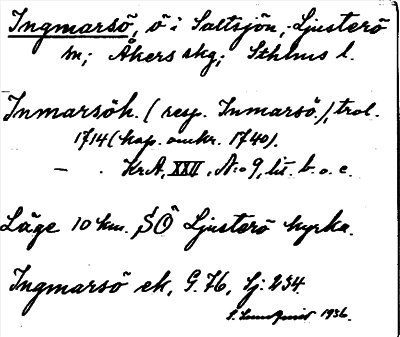 Ingmarsö, ö i Saltsjön, Ljusterö
sn; Åkers skg; Sthlms l.
Inmarsöh. (resp. Inmarsö.), trol.
1714 (kop. omkr. 1740).
— . KrA, XXII, N:o 9, lit. b. o. c.
Läge 10 km. SÖ Ljusterö kyrka.
Ingmarsö ek, G. 76, Sj: 234
S. Lundquist 1936.